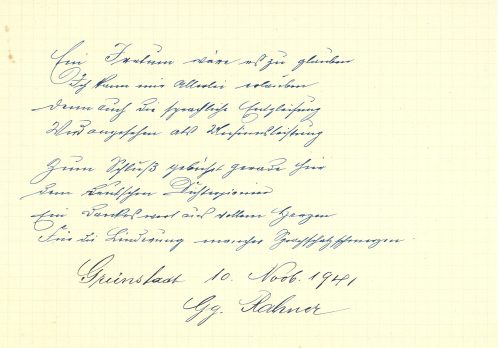 Ein Irrtum wäre es zu glauben
Ich kann mir Allerlei erlauben
denn auch die sprachliche Entgleisung
Wird angesehen als
Zum Schluß gebührt gerade hier
dem deutschen
Ein Dankeswort aus vollem Herzen
Für die Linderung mancher
Grünstadt 10. Novb. 1941
Gg. Rahner